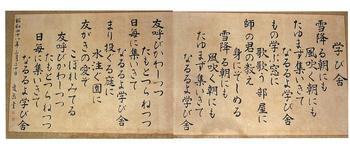 学び舎
雪降る朝にも
風吹く朝にも
たゆまず集いきて
なるるよ学び舎
もの学ぶ窓に
歌歌う部屋に
師の君の教え
身にぞしめる
雪降る朝にも
風吹く朝にも
たゆまず集いきて
なるるよ学び舎
友呼びかわしつつ
たもとつらねつつ
日毎に集いきて
なるるよ学び舎
まり投ぐる庭に
水注ぐ園に
友がきの愛で
こぼれみてる
友呼びかわしつつ
たもとつらねつつ
日毎に集いきて
なるるよ学び舎